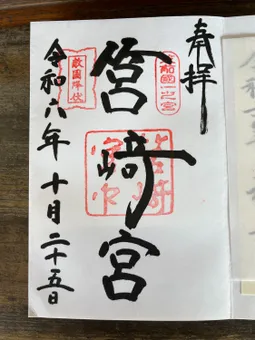 奉拝
筑前國一之宮
筥﨑宮
敵國降伏
令和六年十月二十五日